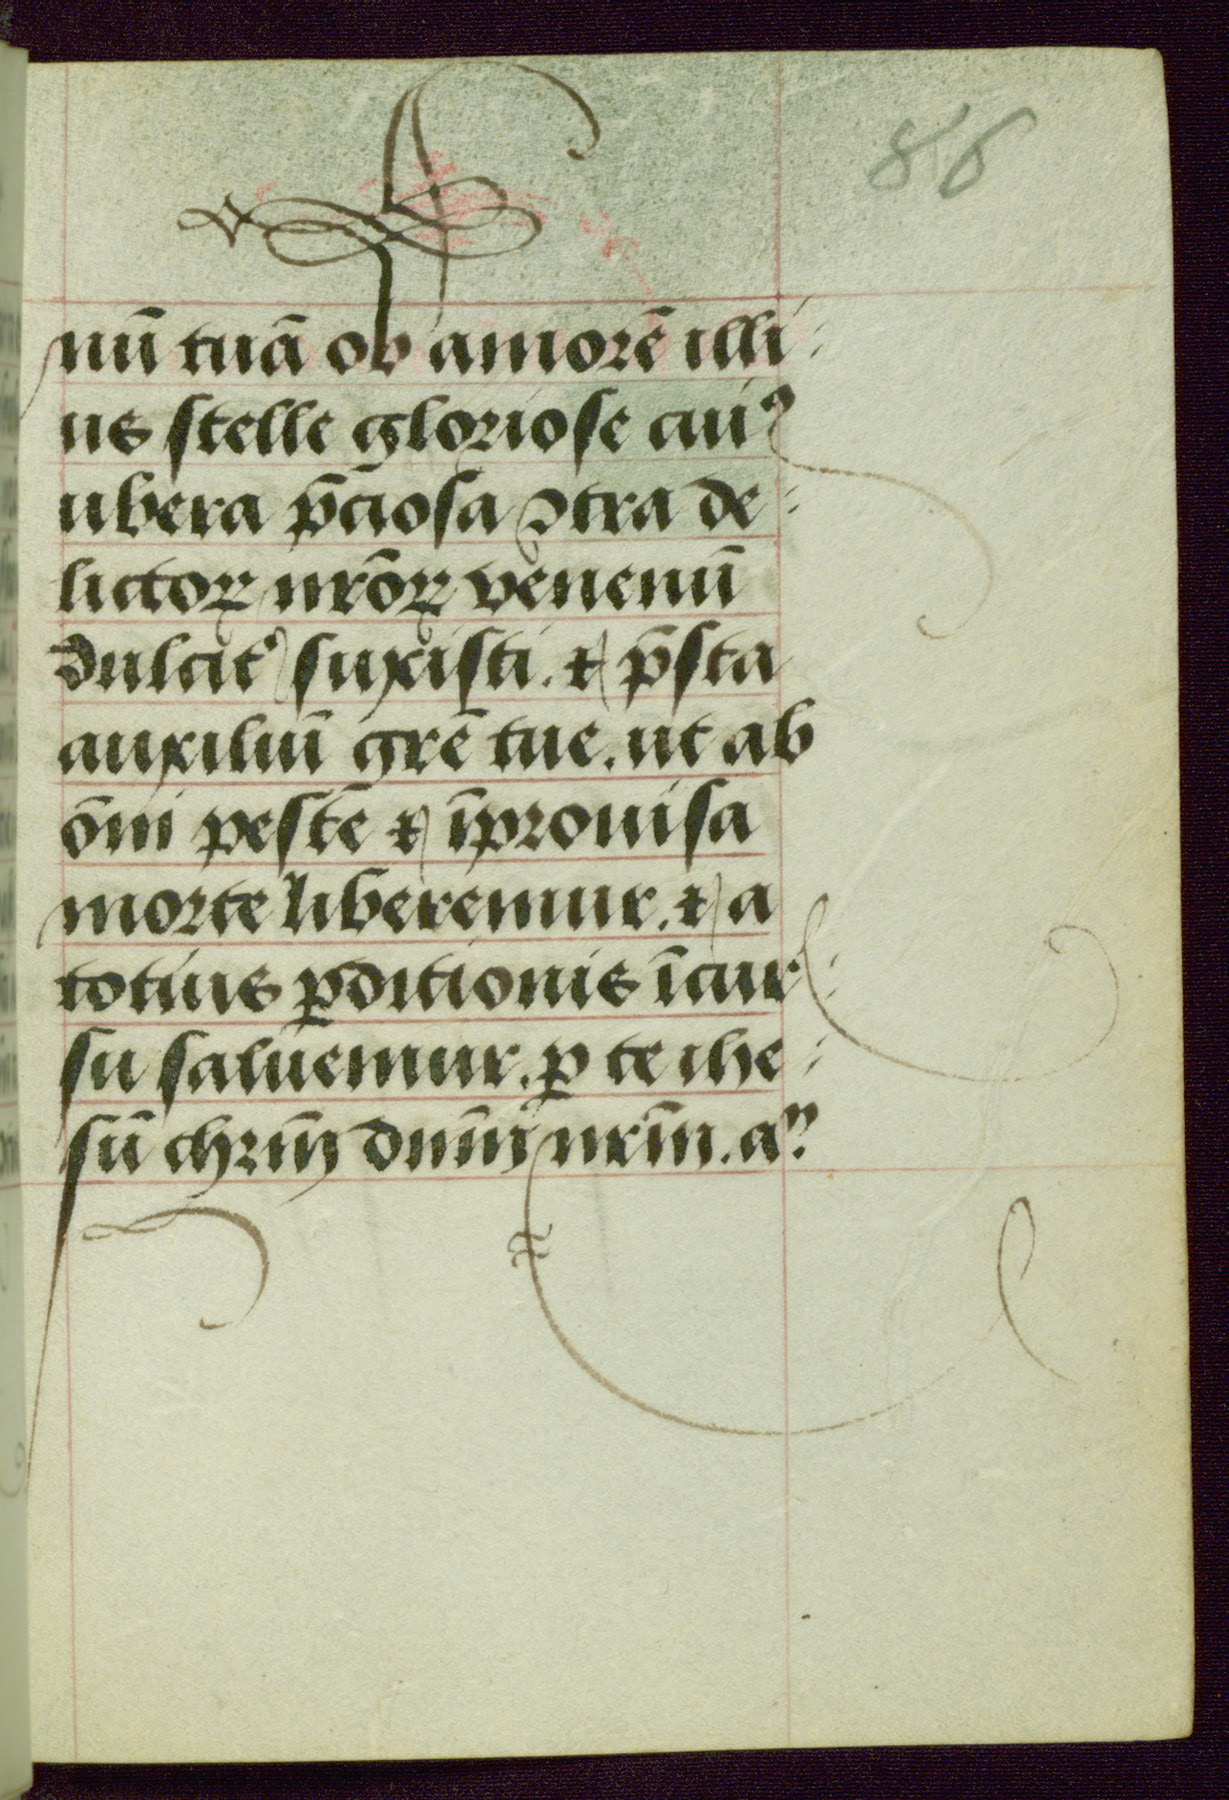 86
nū tuā ob amorē illi
us stelle gloriose cuiꝰ
ubera p̄ciosa ꝯtra de
lictoꝝ nr̄oꝝ venenū
dulcit᷑ suxisti. ⁊ p̄sta
auxiliū gr̄e tue. ut ab
ōni peste ⁊ īprouisa
morte liberemur. ⁊ a
totius ꝑditionis īcur
su saluemur. ꝑ te ihe
sū chrm̄ dnm̄ nrm̄. am